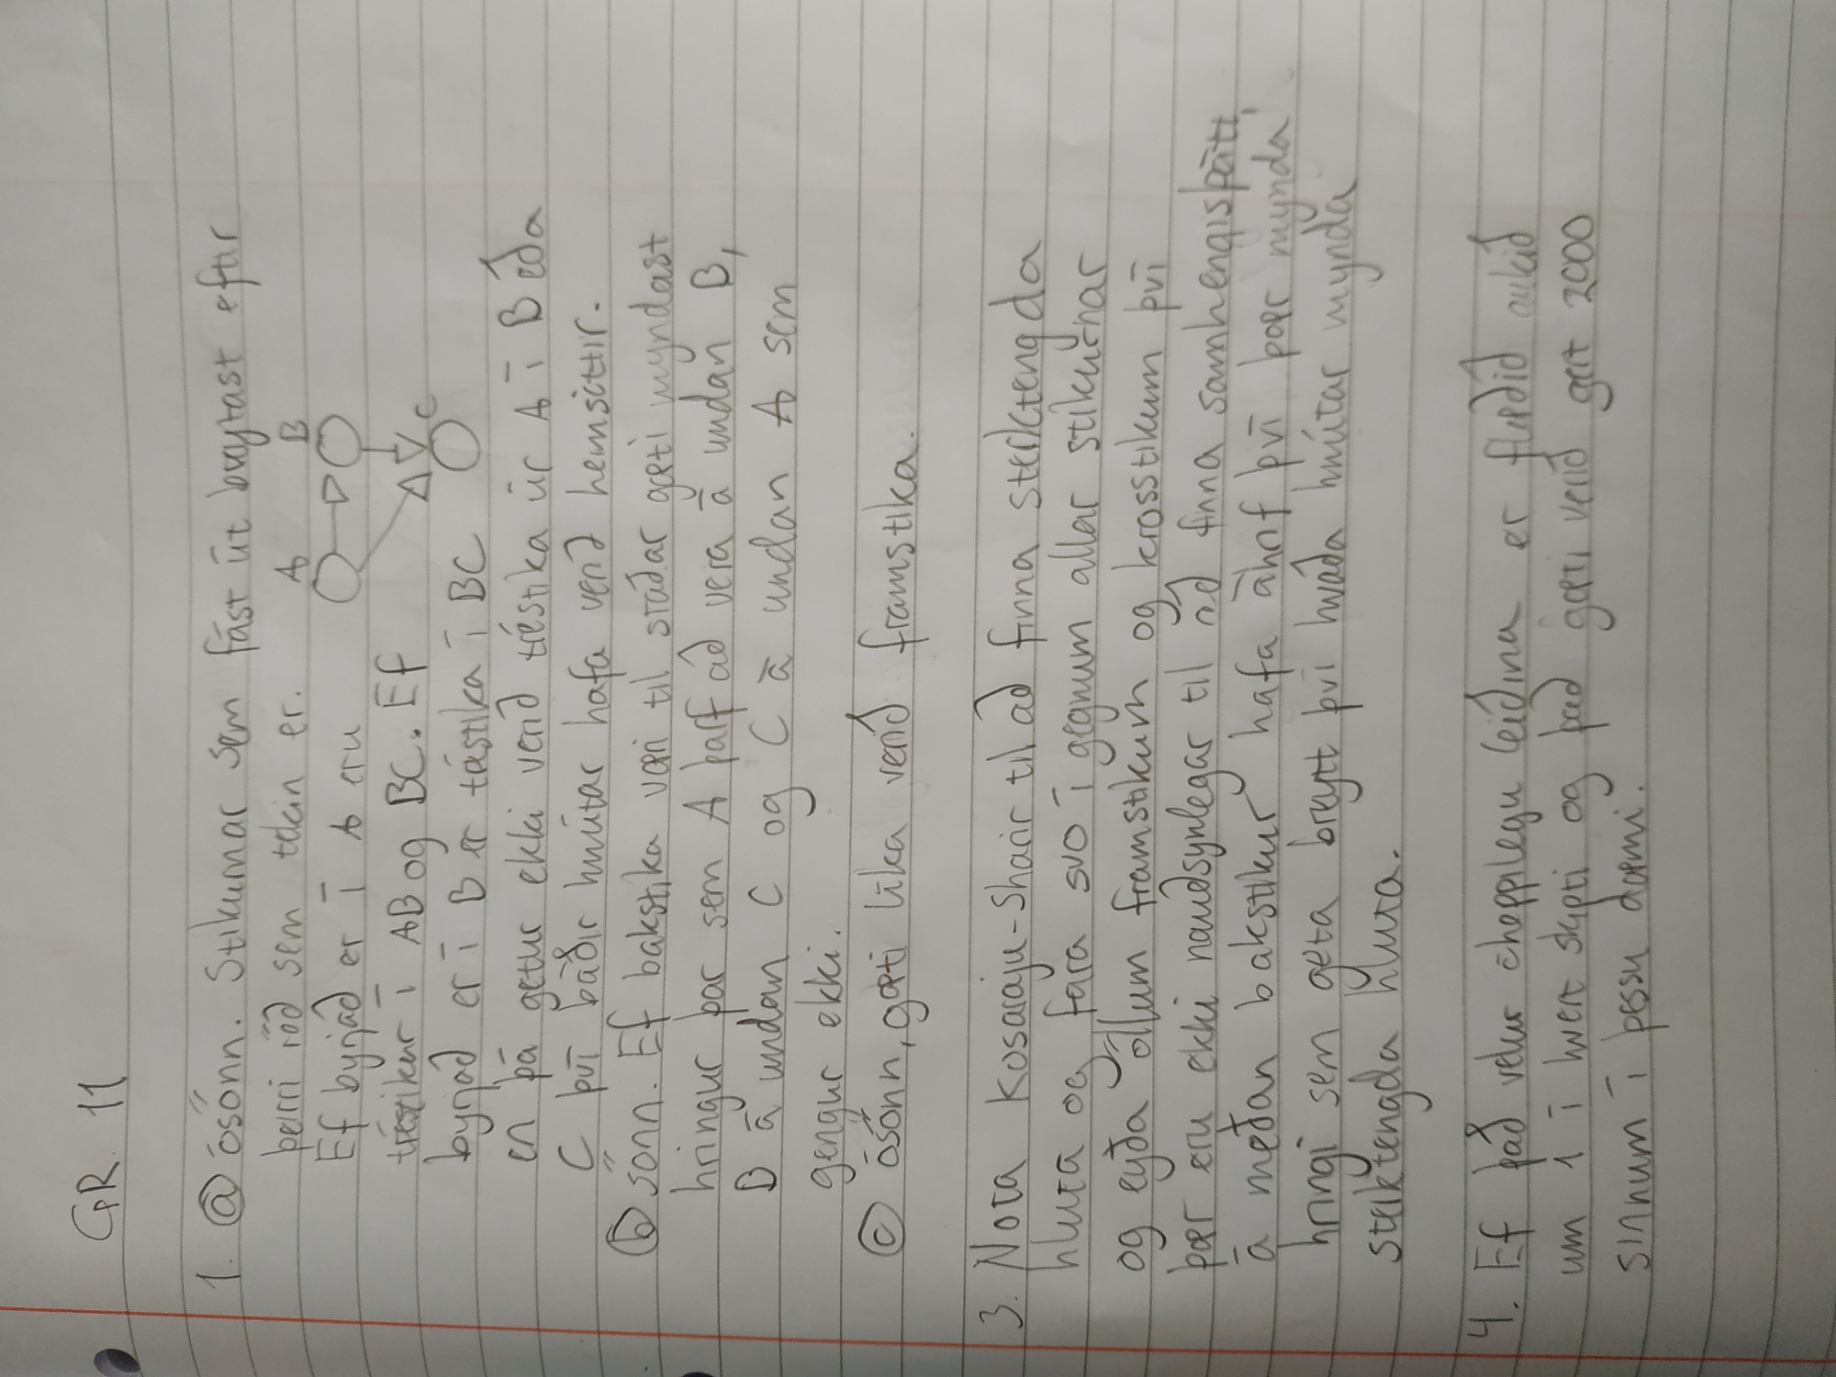 GR. 11
1. a ósönn. Stikurnar sem fást út breytast eftir
þeirri röð sem tekin er.
A B
Ef byrjað er í A eru
tréstikur í AB og BC. Ef
C
byrjað er í B er tréstika í BC
en þá getur ekki verið tréstika úr A í B eða
C því báðir hnútar hafa verið heimsóttir.
b sönn. Ef bakstika væri til staðar gæti myndast
hringur þar sem A þarf að vera á undan B,
B á undan C og C á undan A sem
gengur ekki.
c ósönn, gæti líka verið framstika.
3. Nota Kosaraju-Sharir til að finna sterktengda
hluta og fara svo í gegnum allar stikurnar
og eyða öllum framstikum og krosstikum því
þær eru ekki nauðsynlegar til að finna samhengisþátt,
á meðan bakstikur hafa áhrif því þær mynda
hringi sem geta breytt því hvaða hnútar mynda
sterktengda hluta.
4. Ef það velur óheppilegu leiðina er flæðið aukið
um 1 í hvert skipti og það gæti verið gert 2000
sinnum í þessu dæmi.